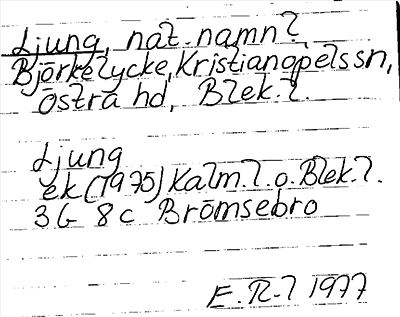 Ljung, nat. namn?
Björkelycke, Kristianopels sn,
Östra hd, Blek. l.
Ljung
ek (1975) Kalm. l. o. Blek. l.
3 G 8 c Brömsebro
E. R-l 1977